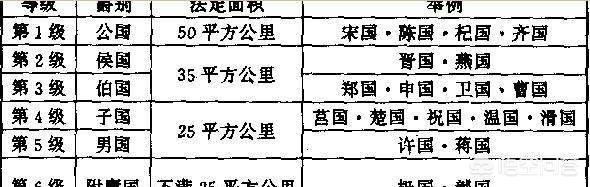 等级 爵别 法定面积 举例
第1级 公国 50平方公里 宋国·陈国·杞国·齐国
第2级 侯国 35平方公里 晋国·燕国
第3级 伯国 郑国·申国·卫国、曹国
第4级 子国 25平方公里 莒国·楚国·祝国·温国·滑国
第5级 男国 许国·蒋国
第6级 附庸国 不满25平方公里